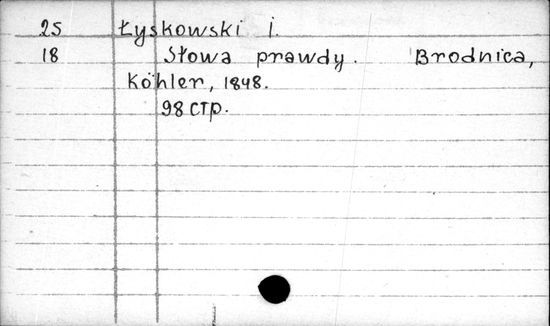 25 Łyskowski i.
18 Słowa prawdy. Brodnica,
Köhler, 1848.
98 стр.